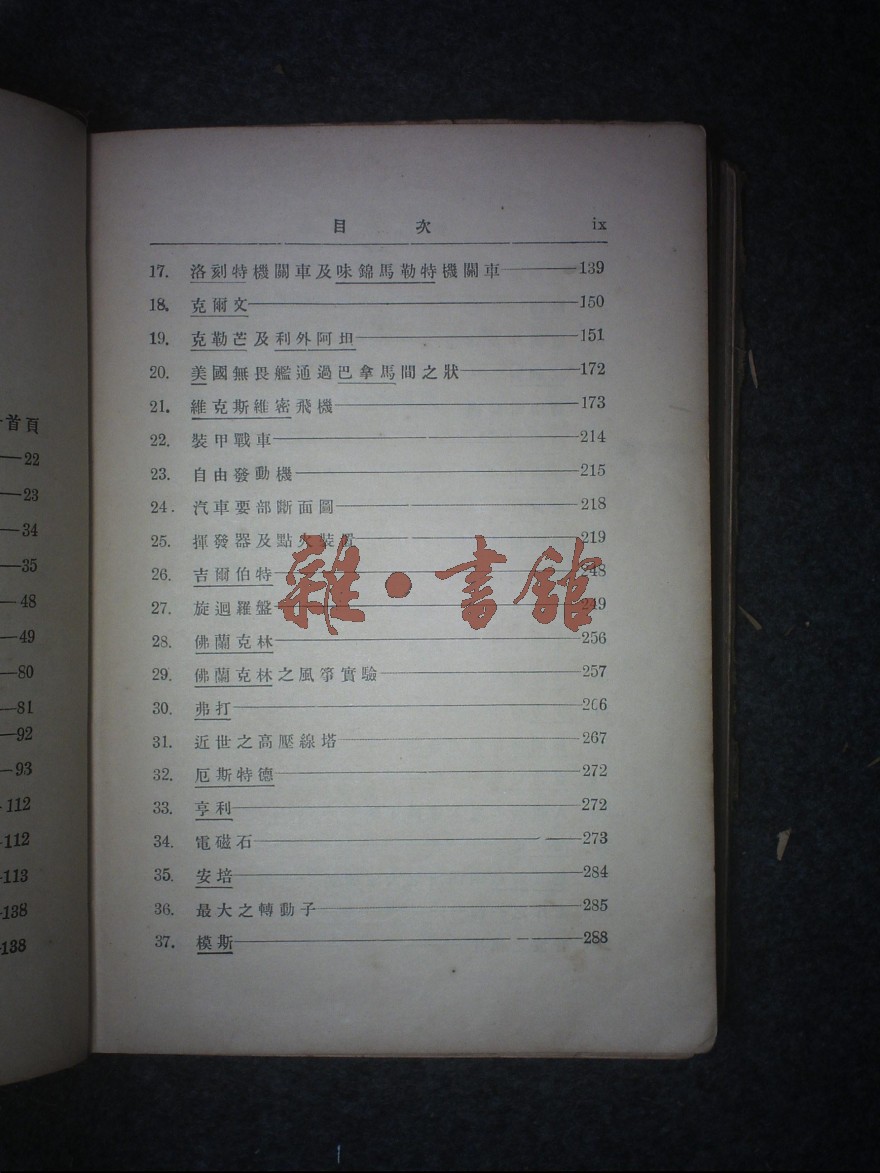 首頁
22
23
34
35
48
49
80
81
92
93
112
112
113
138
138
目 次 ix
17. 洛刻特機關車及味錦馬勒特機關車 139
18. 克爾文 150
19. 克勒芒及利外阿坦 151
20. 美國無畏艦通過巴拿馬間之狀 172
21. 維克斯維密飛機 173
22. 裝甲戰車 214
23. 自由發動機 215
24. 汽車要部斷面圖 218
25. 揮發器及點火裝置 219
26. 吉爾伯特 248
27. 旋迴羅盤 249
28. 佛蘭克林 256
29. 佛蘭克林之風箏實驗 257
30. 弗打 266
31. 近世之高壓線塔 267
32. 厄斯特德 272
33. 亨利 272
34. 電磁石 273
35. 安培 284
36. 最大之轉動子 285
37. 模斯 288
雜·書館